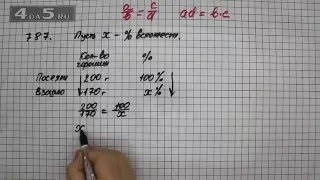 4DA5.RU
a/b = c/d ad = b·c
787. Пусть x - % всхожести.
Кол-во %
горошин
Посеяли 200 г 100 %
Взошло 170 г x %
200/170 = 100/x
x